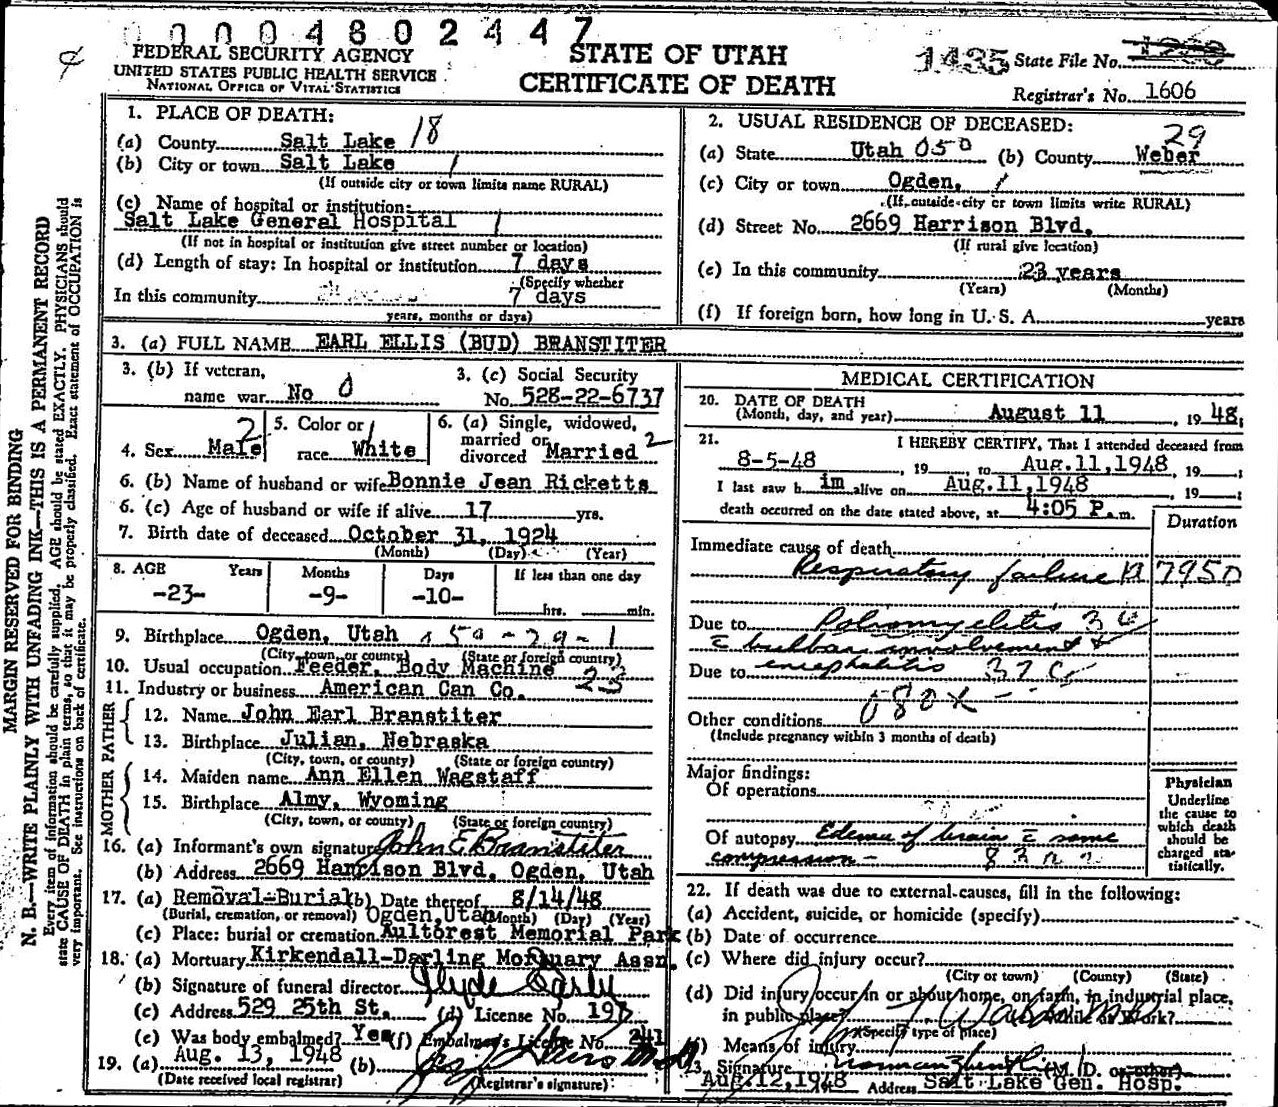 00004802447
FEDERAL SECURITY AGENCY
UNITED STATES PUBLIC HEALTH SERVICE
NATIONAL OFFICE OF VITAL STATISTICS
STATE OF UTAH
CERTIFICATE OF DEATH
1435 State File No.
Registrar's No. 1606
MARGIN RESERVED FOR BINDING
N. B.—WRITE PLAINLY WITH UNFADING INK—THIS IS A PERMANENT RECORD
Every item of information should be carefully supplied. AGE should be stated EXACTLY. PHYSICIANS should
state CAUSE OF DEATH in plain terms, so that it may be properly classified. Exact statement of OCCUPATION is
very important. See instructions on back of certificate.
1. PLACE OF DEATH:
(a) County Salt Lake 18
(b) City or town Salt Lake 1
(If outside city or town limits name RURAL)
(c) Name of hospital or institution:
Salt Lake General Hospital 1
(If not in hospital or institution give street number or location)
(d) Length of stay: In hospital or institution 7 days
(Specify whether
In this community 7 days
years, months or days)
2. USUAL RESIDENCE OF DECEASED:
29
(a) State Utah 050 (b) County Weber
(c) City or town Ogden, 1
(If outside city or town limits write RURAL)
(d) Street No. 2669 Harrison Blvd.
(If rural give location)
(e) In this community 23 years
(Years) (Months)
(f) If foreign born, how long in U. S. A. years
3. (a) FULL NAME EARL ELLIS (BUD) BRANSTITER
3. (b) If veteran,
name war No 0
3. (c) Social Security
No. 528-22-6737
4. Sex Male 2
5. Color or
race White 1
6. (a) Single, widowed,
married or
divorced Married 2
6. (b) Name of husband or wife Bonnie Jean Ricketts
6. (c) Age of husband or wife if alive 17 yrs.
7. Birth date of deceased October 31, 1924
(Month) (Day) (Year)
8. AGE Years Months Days If less than one day
-23- -9- -10- hrs. min.
9. Birthplace Ogden, Utah
(City, town, or county) (State or foreign country)
10. Usual occupation Feeder, Body Machine 23
11. Industry or business American Can Co.
FATHER
12. Name John Earl Branstiter
13. Birthplace Julian, Nebraska
(City, town, or county) (State or foreign country)
MOTHER
14. Maiden name Ann Ellen Wagstaff
15. Birthplace Almy, Wyoming
(City, town, or county) (State or foreign country)
16. (a) Informant's own signature John E Branstiter
(b) Address 2669 Harrison Blvd, Ogden, Utah
17. (a) Removal-Burial (b) Date thereof 8/14/48
(Burial, cremation, or removal) Ogden, Utah (Month) (Day) (Year)
(c) Place: burial or cremation Aultorest Memorial Park
18. (a) Mortuary Kirkendall-Darling Mortuary Assn.
(b) Signature of funeral director
(c) Address 529 25th St. (d) License No. 197
(e) Was body embalmed? Yes (f) Embalmer's License No. 241
19. (a) Aug. 13, 1948 (b)
(Date received local registrar) (Registrar's signature)
MEDICAL CERTIFICATION
20. DATE OF DEATH
(Month, day, and year) August 11, 1948
21. I HEREBY CERTIFY, That I attended deceased from
8-5-48, 19 to Aug.11,1948, 19 ;
I last saw him alive on Aug.11,1948, 19 ;
death occurred on the date stated above, at 4:05 P.m.
Duration
Immediate cause of death
Respiratory failure 795D
Due to Poliomyelitis
c bulbar involvement &
Due to encephalitis
080x
Other conditions
(Include pregnancy within 3 months of death)
Major findings:
Of operations
Of autopsy Edema of brain c some
compression-
Physician
Underline
the cause to
which death
should be
charged sta-
tistically.
22. If death was due to external causes, fill in the following:
(a) Accident, suicide, or homicide (specify)
(b) Date of occurrence
(c) Where did injury occur?
(City or town) (County) (State)
(d) Did injury occur in or about home, on farm, in industrial place,
in public place? While at work?
(Specify type of place)
(f) Means of injury
23. Signature (M. D. or other)
Aug.12,1948 Address Salt Lake Gen. Hosp.